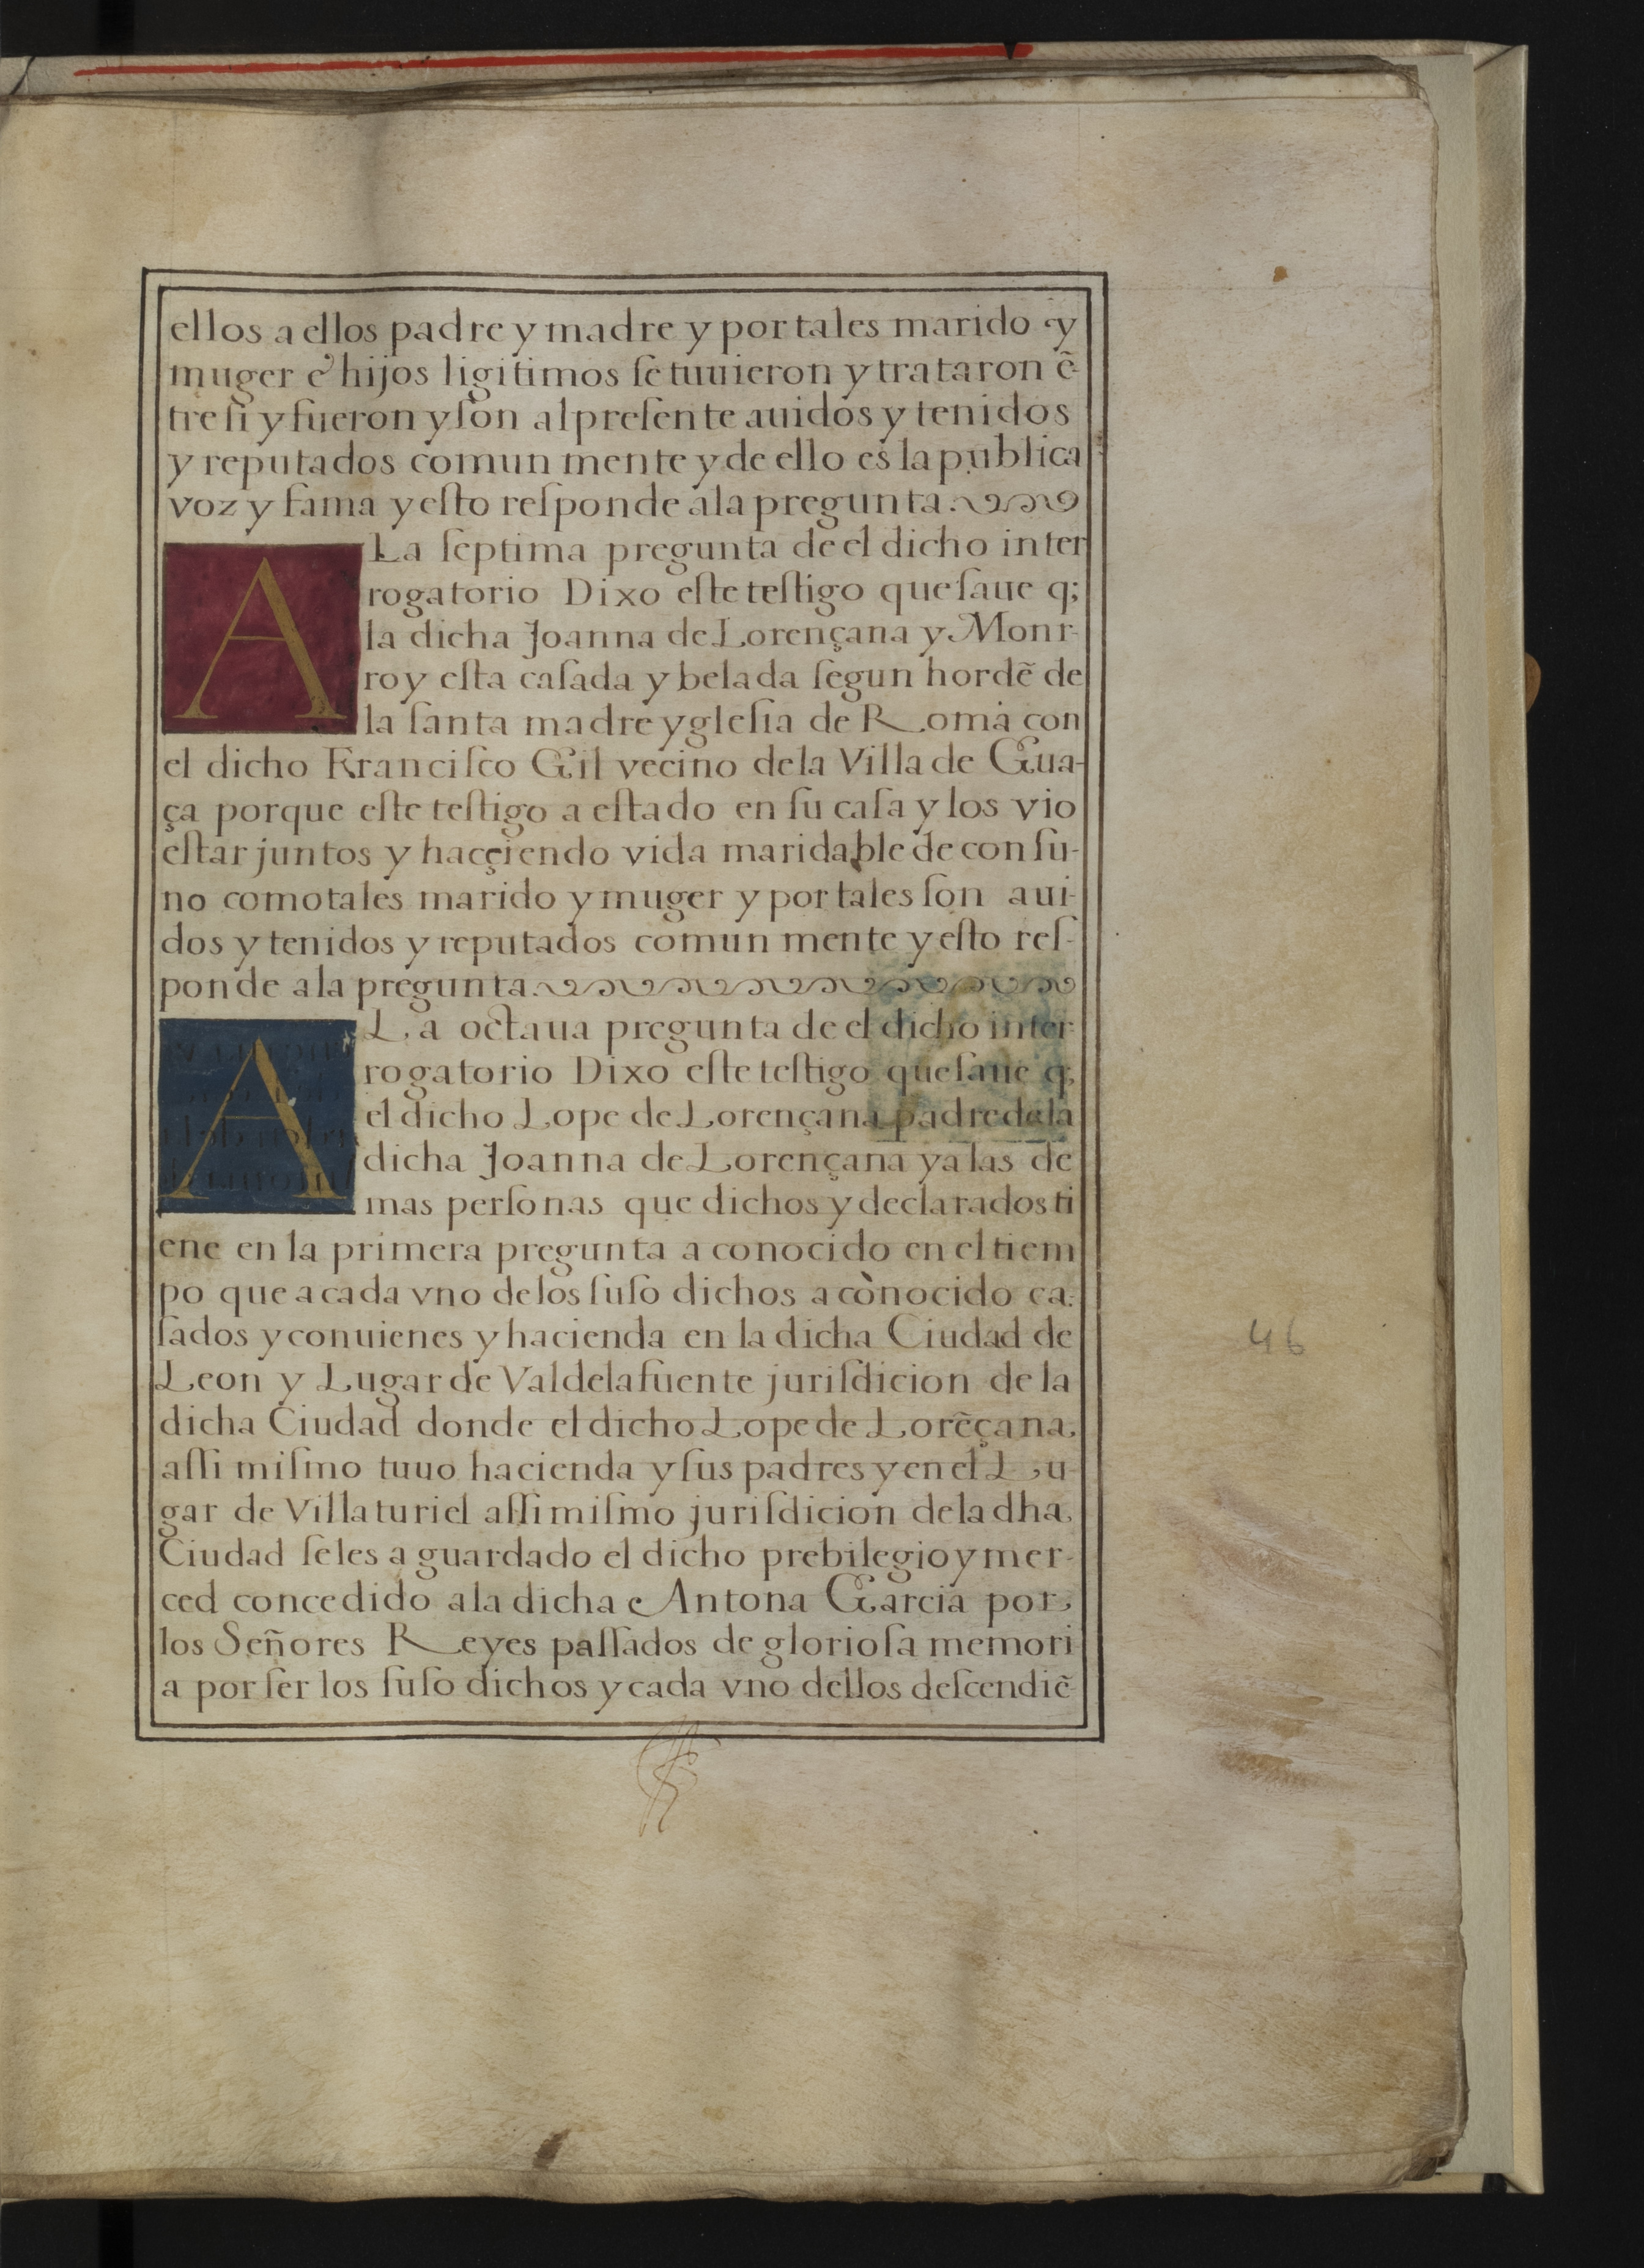 ellos a ellos padre y madre y por tales marido y
muger e hijos ligitimos ſe tuuieron y trataron ẽ-
tre ſi y fueron y ſon al preſente auidos y tenidos
y reputados comun mente y de ello es la publica
voz y fama y eſto reſponde a la pregunta.
A La ſeptima pregunta de el dicho inter
rogatorio Dixo eſte teſtigo que ſaue q;
la dicha Joanna de Lorençana y Monr-
roy eſta caſada y belada ſegun hordẽ de
la ſanta madre ygleſia de Roma con
el dicho Franciſco Gil vecino de la Villa de Gua-
ça porque eſte teſtigo a eſtado en ſu caſa y los vio
eſtar juntos y haççiendo vida maridable de con ſu-
no como tales marido y muger y por tales ſon aui-
dos y tenidos y reputados comun mente y eſto reſ-
ponde a la pregunta.
A La octaua pregunta de el dicho inter-
rogatorio Dixo eſte teſtigo que ſaue q;
el dicho Lope de Lorençana padre de la
dicha Joanna de Lorençana y a las de
mas perſonas que dichos y declarados ti
ene en la primera pregunta a conocido en el tiem
po que a cada vno de los ſuſo dichos a cònocido ca.
ſados y con uienes y hacienda en la dicha Ciudad de
Leon y Lugar de Valdelafuente juriſdicion de la
dicha Ciudad donde el dicho Lope de Lorẽçana,
aſſi miſmo tuuo hacienda y ſus padres y en el Lu-
gar de Villaturiel aſſi miſmo juriſdicion de la dha,
Ciudad ſe les a guardado el dicho prebilegio y mer-
ced concedido a la dicha Antona Garcia por,
los Señores Reyes paſſados de glorioſa memori
a por ſer los ſuſo dichos y cada vno dellos deſcendiẽ-
46